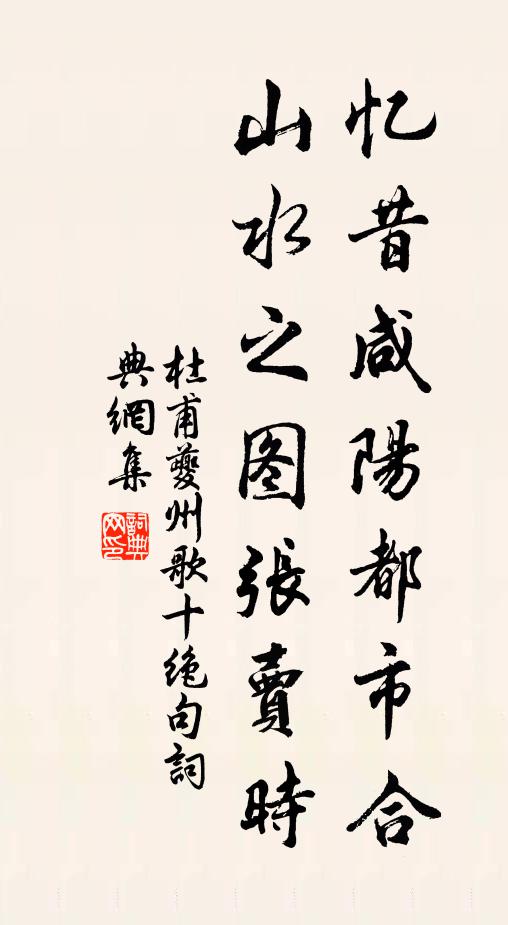 忆昔咸陽都市合
山水之图張賣時
杜甫夔州歌十绝句詞
典網集
詞典
网印